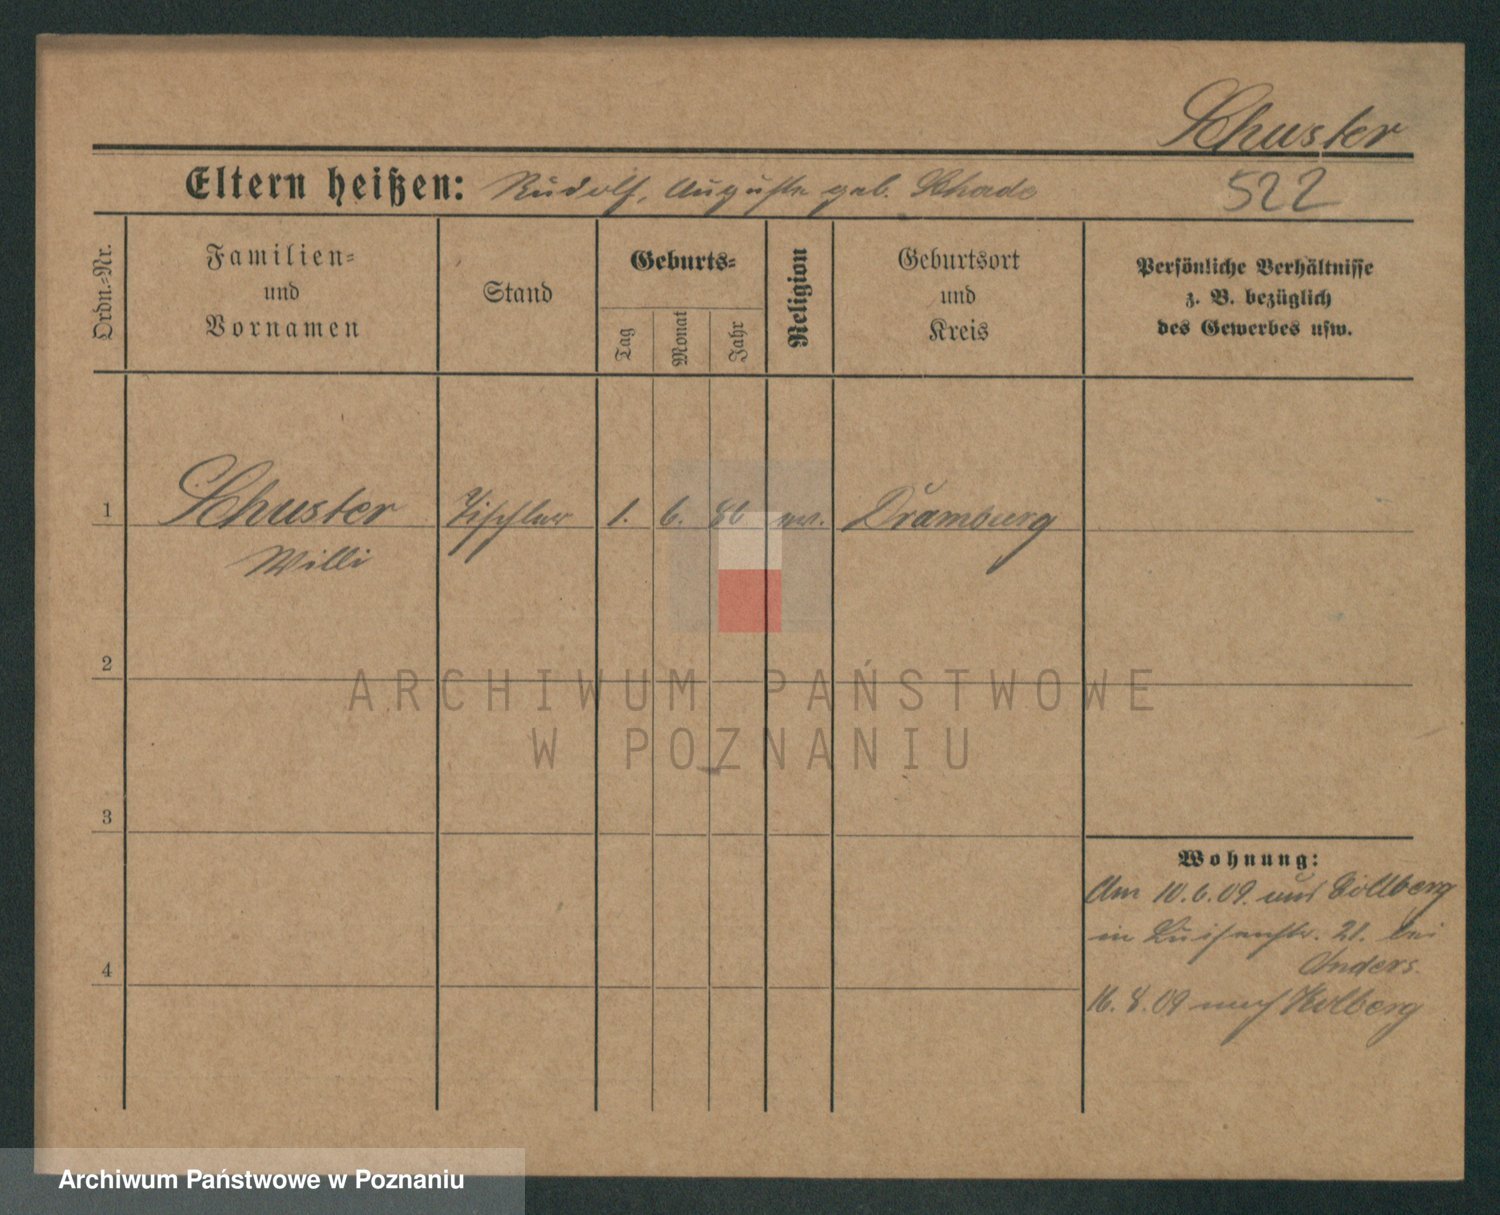 Schuster
Eltern heißen: Rudolf, Auguste geb. Schade
522
Ordn.=Nr.
Familien=
und
Vornamen
Stand
Geburts=
Tag
Monat
Jahr
Religion
Geburtsort
und
Kreis
Persönliche Verhältnisse
z. B. bezüglich
des Gewerbes usw.
1 Schuster Tischler 1. 6. 86 ev. Dramburg
Willi
2
3
4
Wohnung:
Am 10.6.09. aus
in Luisenstr. 21. bei
Anders.
16.8.09 nach Kolberg
ARCHIWUM PAŃSTWOWE
W POZNANIU
Archiwum Państwowe w Poznaniu